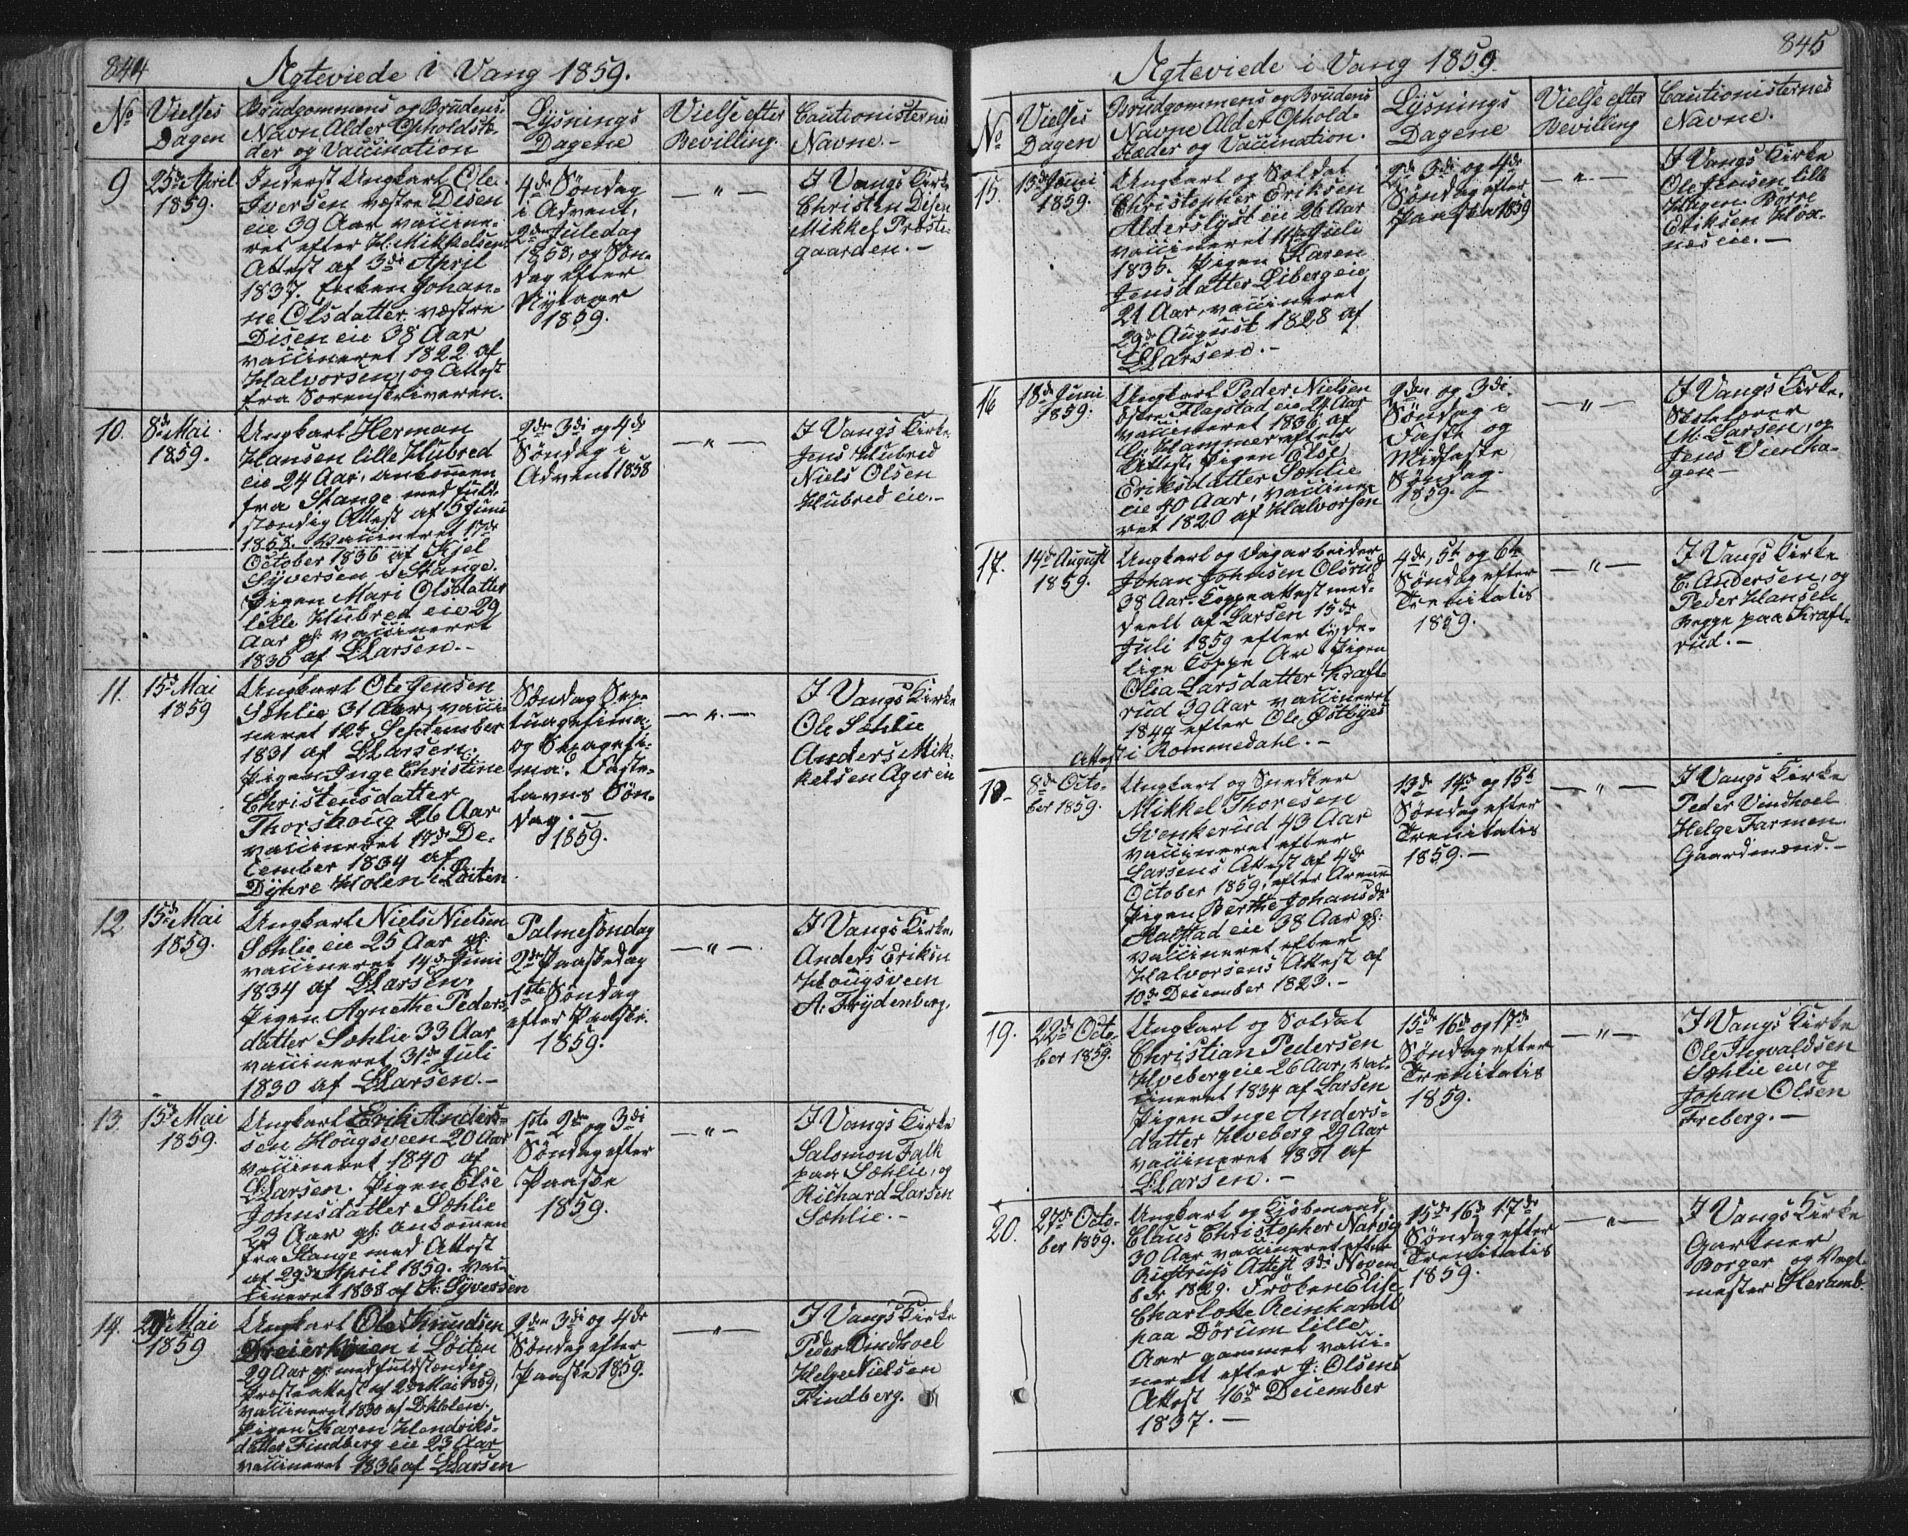 844
Ægteviede i Vang 1859.
No
Vielses
Dagen
Brudgommens og Brudens
Navn Alder Opholdste-
der og Vaccination
Lysnings
Dagene
Vielse efter
Bevilling.
Cautionisternes
Navne.-
9
25de April
1859.
Inderst Ungkarl Ole
Iversen væstre Disen
eie 39 Aar vaccine-
ret efter H: Mikkelsens
Attest af 3di April
1837. Enken Johan-
ne Olsdatter væstre
Disen eie 38 Aar
vaccineret 1822 af
Halvorsen, og Attest
fra Sorenskriveren.
4de Søndag
i Advent,
2den Juledag
1858, og Søn-
dag efter
Nytaar
1859.
- " -
I Vangs Kirke
Christen Disen
Mikkel Præste-
gaarden.-
10.
8de Mai
1859.
Ungkarl Herman
Hansen lille Hubred
eie 24 Aar, ankommen
fra Stange med fuld-
stændig Attest af 5 Juni
1858. Vaccineret 17de
October 1836 af Kjel
Syversen i Stange.
Pigen Mari Olsdatter
lille Hubred eie 29
Aar gl: vaccineret
1830 af LLarsen.-
2den 3di og 4de
Søndag i
Advent 1858
- " -
I Vangs Kirke
Jens Hubred
Niels Olsen
Hubred eie.-
11.
15de Mai
1859
Ungkarl Ole Jensen
Søhlie 31 Aar, vacci-
neret 12te September
1831 af LLarsen.
Pigen Inge Christine
Christensdatter
Thorshoug 26 Aar
vaccineret 17de De-
cember 1834 af
Dyhre Holen i Løiten
Søndag Sep-
tuagesima,
og Sexagesi-
ma. Faste-
lavns Søn-
dag.-
1859.
- " -
I Vangs Kirke
Ole Sæhlie
Anders Mik-
kelsen Ager eie
12
15de Mai
1859.
Ungkarl Niels Nielsen
Sæhlie eie 25 Aar gl:
vaccineret 14de Juni
1834 af LLarsen.
Pigen Agnethe Peders-
datter Sæhlie 33 Aar
vaccineret 31de Juli
1830 af LLarsen.-
Palmesøndag
2den Paaskedag
1ste Søndag
efter Paaske.
1859.
- " -
I Vangs Kirke.
Anders Eriksen
Hougsveen
A: Frydenberg,
13.
15de Mai
1859.
Ungkarl Erik Anders-
sen Hougsveen 20 Aar
vaccineret 1840 af
LLarsen. Pigen Else
Johnsdatter Sæhlie
29 Aar gl: ankommen
fra Stange med Attest
af 29de April 1859. Vac-
cineret 1838 af K: Syversen
1ste 2den og 3di
Søndag efter
Paaske
1859.
- " -
I Vangs Kirke
Salomon Falk
paa Sæhlie, og
Richard Larsen
Sæhlie.-
14.
Mai
1859
Ungkarl Ole Knudsen
i Løiten
29 Aar gl: med fuldstændig
Præsteattest af Mai 1859,
vaccineret 1830 af DHolen.
Pigen Karen Hendriks-
datter Findberg eie 23 Aar
vaccineret 1836 af LLarsen
2den 3di og 4de
Søndag efter
Paaske 1859.
- " -
I Vangs Kirke
Peder Vindhoel
Helge Nielsen
Findberg.
845
Ægteviede i Vang 1859.
No
Vielses
Dagen
Brudgommens og Brudens
Navne Alder Ophold-
stæder og Vaccination.
Lysnings
Dagene
Vielse efter
Bevilling
Cautionisternes
Navne.
15.
13de Juni
1859.
Ungkarl og Soldat
Christopher Eriksen
Alderslyst eie 26 Aar
vaccineret 11te Juli
1835. Pigen Karen
Jensdatter Liberg eie
21 Aar, vaccineret
29de August 1828 af
LLarsen.-
2de 3di og 4de
Søndag efter
Paaske 1859
- " -
I Vangs Kirke
Ole Jensen lille
Børre
Eriksen Hox-
næs eie.-
16
18de Juni
1859.
Ungkarl Peder Nielsen
østre Flagstad eie 24 Aar
vaccineret 1836 af
C: Hammer efter
Attest, Pigen Else
Eriksdatter Sæhlie
eie 40 Aar, vaccine-
ret 1820 af Halvorsen
2den og 3di
Søndag i
Faste og
Midfaste
Søndag.
1859.-
- " -
I Vangs Kirke.
Skolelærer
M: Larsen, og
Jens Vienha-
gen-
17.
14de August
1859.
Ungkarl og Dagarbeider
Johan Johnsen Olsrud
38 Aar. Koppeattest med-
deelt af Larsen 15de
Juli 1859 efter tyde-
lige Koppe Ar. Pigen
Olia Larsdatter Kraft-
rud 39 Aar vaccineret
1844 efter Ole Østbyes
Attest i Rommedahl.-
4de, 5te og 6te
Søndag efter
Trenitatis
1859.
- " -
I Vangs Kirke
C: Andersen, og
Peder Hansen
begge paa Kraft-
rud.-
18-
8de Octo-
ber 1859.
Ungkarl og Snedker
Mikkel Thoresen
Svenkerud 43 Aar
vaccineret efter
Larsens Attest af 4de
October 1859, efter Arene
Pigen Berthe Johansdr
Kaestad eie 38 Aar gl:
vaccineret efter
Halvorsens Attest af
10de December 1823.-
13de 14de og 15de
Søndag efter
Trenitatis
1859.-
- " -
I Vangs Kirke
Peder Vindhoel
Helge Farmen
Gaardmænd.-
19.
22de Octo-
ber 1859.
Ungkarl og Soldat
Christian Pedersen
Hveberg eie 26 Aar, vac-
cineret 1834 af Larsen
Pigen Inge Anders-
datter Hveberg 29 Aar
vaccineret 1831 af
LLarsen.-
15de 16de og 17de
Søndag efter
Trenitatis
1859.
- " -
I Vangs Kirke
Ole Ingvaldsen
Sæhlie eie, og
Johan Olsen
Freberg.-
20.
27de Octo-
ber 1859.
Ungkarl og Kjøbmand,
Claus Christopher Narvig
30 Aar vaccineret efter
Attest 3di Novem-
ber 1829. Frøken Elise
Charlotte Reinhardt
paa Dørum lille
Aar gammel vacci-
neret efter J: Olsens
Attest 16de December
1837.-
15de 16de 17de
Søndag efter
Trenitatis
1859.
- " -
I Vangs Kirke
Gartner
Borger og Vagt-
mester Heramb.